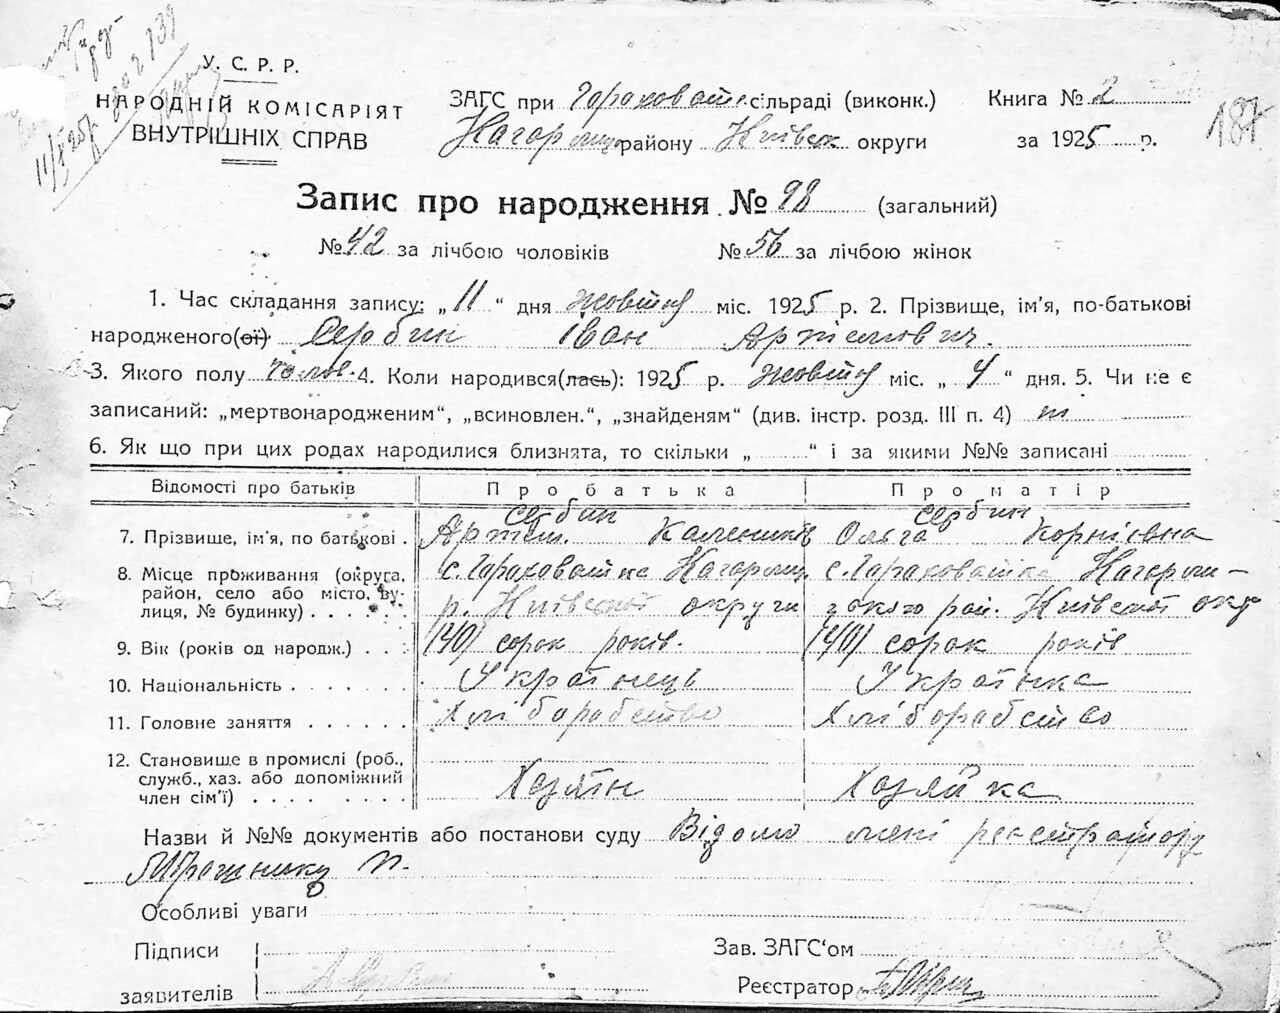 У. С. Р. Р.
НАРОДНІЙ КОМІСАРІЯТ
ВНУТРІШНІХ СПРАВ
ЗАГС при Гораховатс. сільраді (виконк.)
району Київськ округи
Книга № 2
за 1925 р.
187
Запис про народження № 98 (загальний)
№ 42 за лічбою чоловіків № 56 за лічбою жінок
1. Час складання запису: „ 11 “ дня жовтня міс. 1925 р. 2. Прізвище, ім'я, по-батькові
народженого(ої) Сербин Іван Артемович.
3. Якого полу чолов. 4. Коли народився(лась): 1925 р. жовтня міс. „ 4 “ дня. 5. Чи не є
записаний: „мертвонародженим“, „всиновлен.“, „знайденям“ (див. інстр. розд. III п. 4)
6. Як що при цих родах народилися близнята, то скільки „ “ і за якими №№ записані
Відомості про батьків Про батька Про матір
Сербин Сербин
7. Прізвище, ім'я, по батькові . Артем Каленик. Ольга Корніевна
8. Місце проживання (округа,
район, село або місто, вулиця, № будинку) . . . р. Київської округи рай. Київської окр
9. Вік (років од народж.) . . . (40) сорок років. (40) сорок років
10. Національність . . . . . . . Українець Українка
11. Головне заняття . . . . . . Хліборобство Хліборобство
12. Становище в промислі (роб.,
служб., хаз. або допоміжний
член сім'ї) . . . . . . . . . Хазяїн Хазяйка
Назви й №№ документів або постанови суду Відомо мені реєстратору
Особливі уваги
Підписи
заявителів
Зав. ЗАГС'ом
Реєстратор